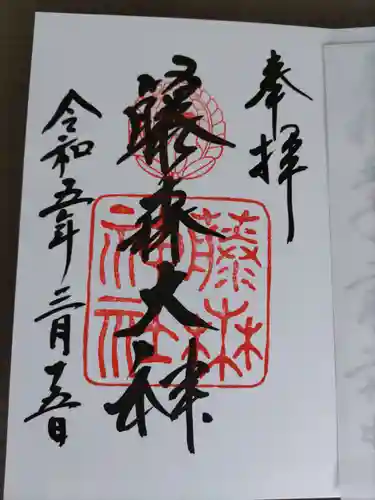 奉拝
藤森大神
令和五年三月十五日
藤森神社